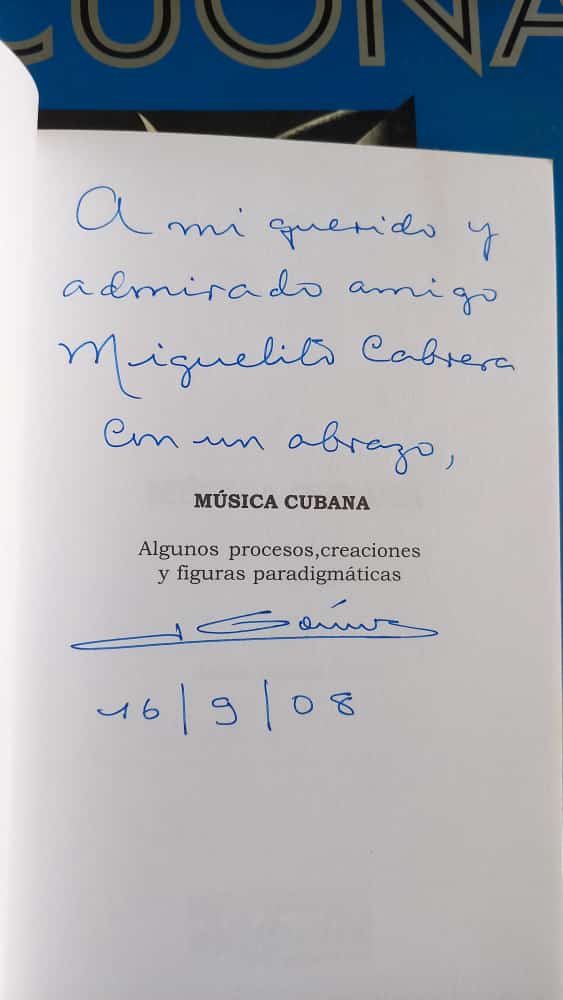 CUONA
A mi querido y
admirado amigo
Miguelito Cabrera
con un abrazo,
MÚSICA CUBANA
Algunos procesos,creaciones
y figuras paradigmáticas
16/9/08